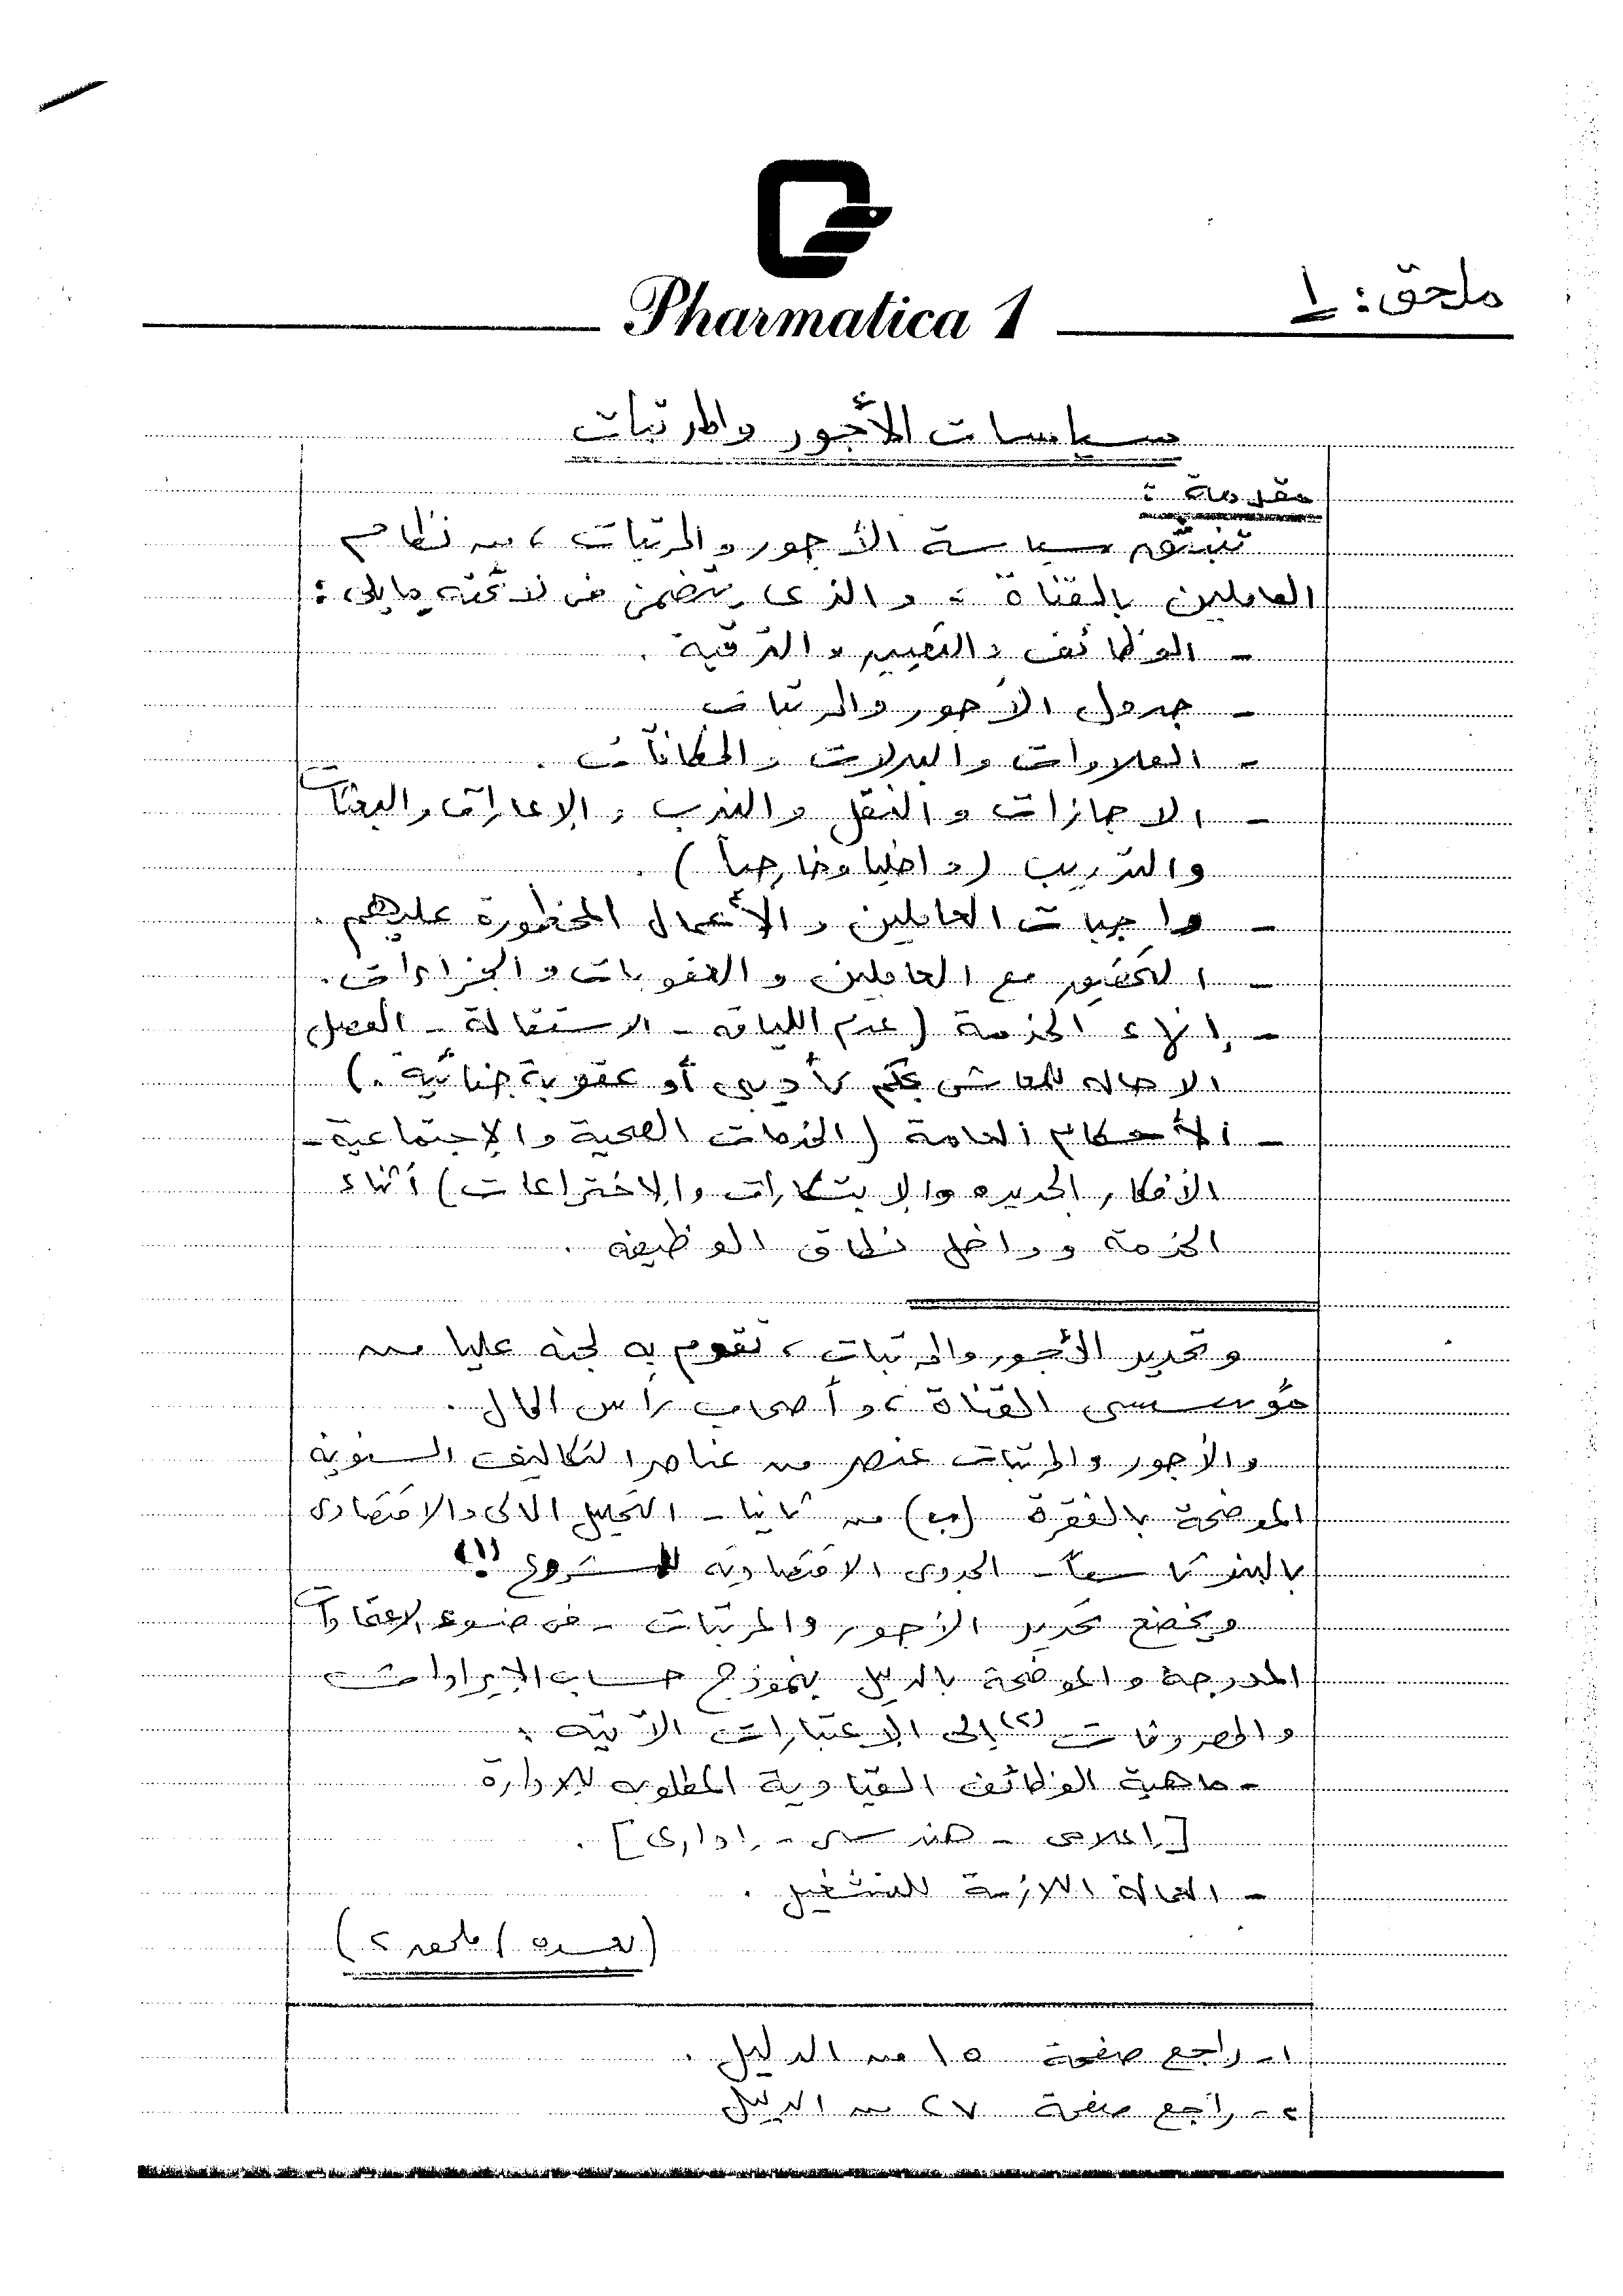 Pharmatica 1
ملحق: ١
سياسات الأجور والمرتبات
مقدمة :
تنبثق سياسة الأجور والمرتبات ، من نظام
العاملين بالقناة ، والذى يتضمن فى لائحته مايلى :
- الوظائف والتعيين والترقية .
- جدول الأجور والمرتبات
- العلاوات والبدلات والمكافآت .
- الاجازات والنقل والندب والإعارات والبعثات
والتدريب (داخليا وخارجياً) .
- واجبات العاملين والأعمال المحظورة عليهم .
- التحقيق مع العاملين والعقوبات والجزاءات .
- إنهاء الخدمة (عدم اللياقه - الاستقالة - الفصل
الاحاله للمعاش بحكم تأديبى أو عقوبة جنائية .)
- الأحكام العامة (الخدمات الصحية والإجتماعية -
الأفكار الجديده والإبتكارات والإختراعات) أثناء
الخدمة وداخل نطاق الوظيفه .
وتحديد الأجور والمرتبات ، تقوم به لجنه عليا من
مؤسسى القناة ، وأصحاب رأس المال .
والأجور والمرتبات عنصر من عناصر التكاليف السنويه
الموضحة بالفقرة (ب) من ثانيا - التحليل المالى والاقتصادى
بالبند تاسعاً - الجدوى الاقتصاديه للمشروع (١) .
ويخضع تحديد الأجور والمرتبات - فى ضوء الاعتمادات
المدرجة والموضحة بالدليل بنموذج حساب الإيرادات
والمصروفات (٢) إلى الإعتبارات الآتيه :
- ماهية الوظائف القيادية المطلوبه للإدارة
[إعلامى - هندسى - إدارى] .
- العمالة اللازمة للتشغيل .
(بعده / ملحق ٢)
١- راجع صفحة ١٥ من الدليل .
٢- راجع صفحة ٢٧ من الدليل